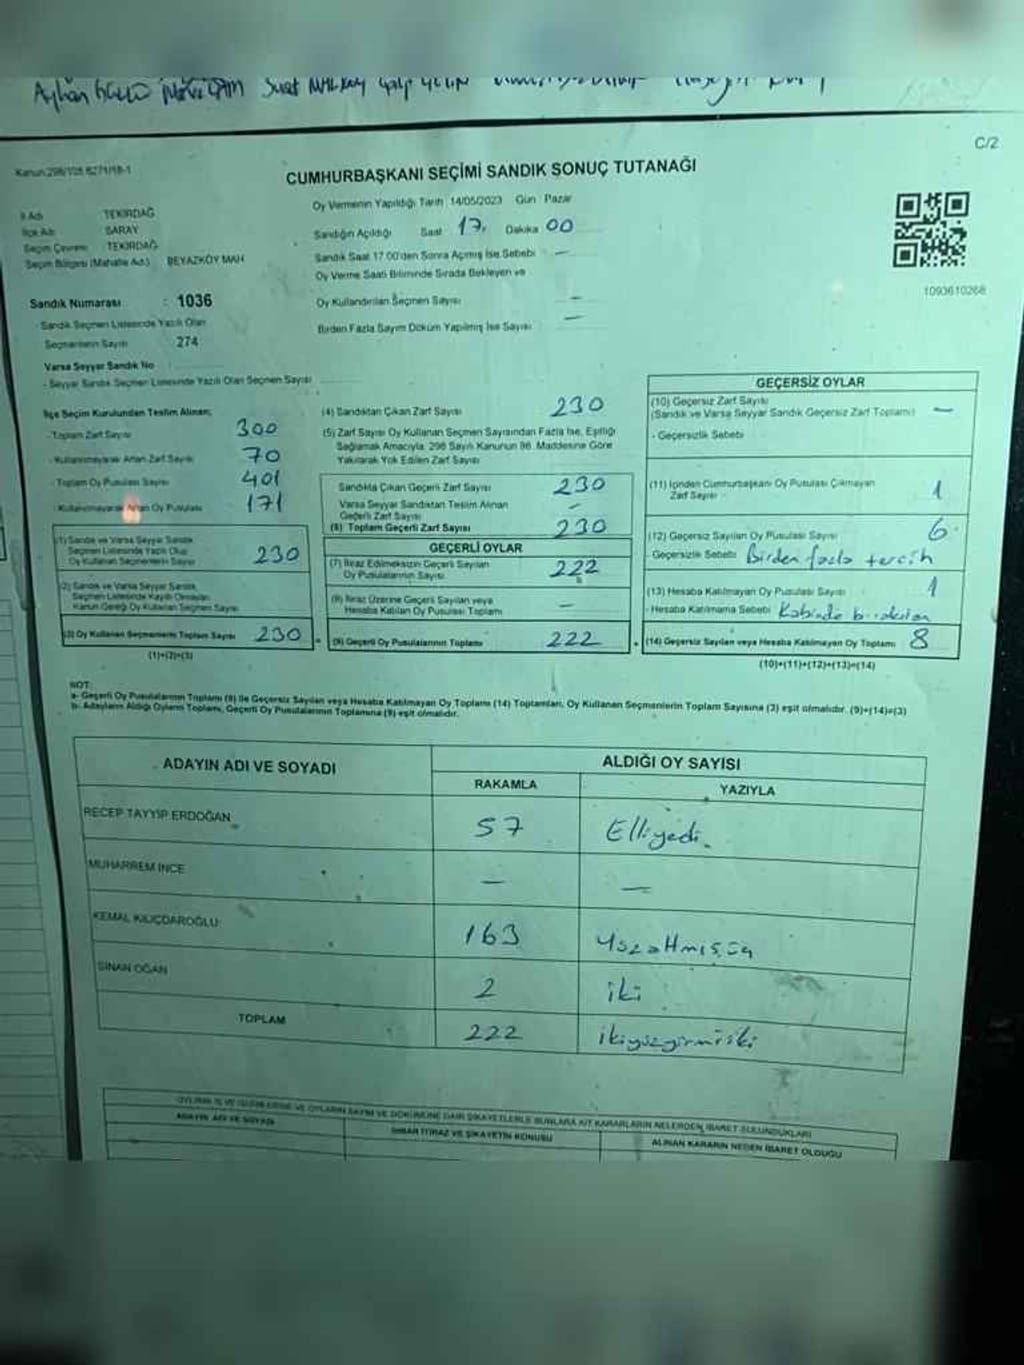 Ayhan
C/2
Kanun:298/105 6271/18-1
CUMHURBAŞKANI SEÇİMİ SANDIK SONUÇ TUTANAĞI
İl Adı TEKİRDAĞ
İlçe Adı SARAY
Seçim Çevresi TEKİRDAĞ
Seçim Bölgesi (Mahalle Adı) BEYAZKÖY MAH
Oy Vermenin Yapıldığı Tarih 14/05/2023 Gün Pazar
Sandığın Açıldığı Saat 17. Dakika 00
Sandık Saat 17.00'den Sonra Açılmış İse Sebebi —
Oy Verme Saati Bitiminde Sırada Bekleyen ve
Oy Kullandırılan Seçmen Sayısı —
Birden Fazla Sayım Döküm Yapılmış İse Sayısı —
1093610268
Sandık Numarası : 1036
- Sandık Seçmen Listesinde Yazılı Olan
Seçmenlerin Sayısı 274
Varsa Seyyar Sandık No
- Seyyar Sandık Seçmen Listesinde Yazılı Olan Seçmen Sayısı
İlçe Seçim Kurulundan Teslim Alınan;
- Toplam Zarf Sayısı 300
- Kullanılmayarak Artan Zarf Sayısı 70
- Toplam Oy Pusulası Sayısı 401
- Kullanılmayarak Artan Oy Pusulası 171
(1) Sandık ve Varsa Seyyar Sandık
Seçmen Listesinde Yazılı Olup
Oy Kullanan Seçmenlerin Sayısı 230
(2) Sandık ve Varsa Seyyar Sandık
Seçmen Listesinde Kaydı Olmayan
Kanun Gereği Oy Kullanan Seçmen Sayısı
(3) Oy Kullanan Seçmenlerin Toplam Sayısı 230
(1)+(2)=(3)
(4) Sandıktan Çıkan Zarf Sayısı 230
(5) Zarf Sayısı Oy Kullanan Seçmen Sayısından Fazla İse, Eşitliği
Sağlamak Amacıyla 298 Sayılı Kanunun 98. Maddesine Göre
Yakılarak Yok Edilen Zarf Sayısı
Sandıkta Çıkan Geçerli Zarf Sayısı 230
Varsa Seyyar Sandıktan Teslim Alınan
Geçerli Zarf Sayısı —
(6) Toplam Geçerli Zarf Sayısı 230
GEÇERLİ OYLAR
(7) İtiraz Edilmeksizin Geçerli Sayılan
Oy Pusulalarının Sayısı 222
(8) İtiraz Üzerine Geçerli Sayılan veya
Hesaba Katılan Oy Pusulası Toplamı —
(9) Geçerli Oy Pusulalarının Toplamı 222
GEÇERSİZ OYLAR
(10) Geçersiz Zarf Sayısı
(Sandık ve Varsa Seyyar Sandık Geçersiz Zarf Toplamı) —
- Geçersizlik Sebebi
(11) İçinden Cumhurbaşkanı Oy Pusulası Çıkmayan
Zarf Sayısı 1
(12) Geçersiz Sayılan Oy Pusulası Sayısı 6
Geçersizlik Sebebi Birden fazla tercih
(13) Hesaba Katılmayan Oy Pusulası Sayısı 1
- Hesaba Katılmama Sebebi Kabinde bırakılan
(14) Geçersiz Sayılan veya Hesaba Katılmayan Oy Toplamı 8
(10)+(11)+(12)+(13)=(14)
NOT:
a- Geçerli Oy Pusulalarının Toplamı (9) ile Geçersiz Sayılan veya Hesaba Katılmayan Oy Toplamı (14) Toplamları, Oy Kullanan Seçmenlerin Toplam Sayısına (3) eşit olmalıdır. (9)+(14)=(3)
b- Adayların Aldığı Oyların Toplamı, Geçerli Oy Pusulalarının Toplamına (9) eşit olmalıdır.
ADAYIN ADI VE SOYADI ALDIĞI OY SAYISI
RAKAMLA YAZIYLA
RECEP TAYYİP ERDOĞAN 57 Elliyedi.
MUHARREM İNCE — —
KEMAL KILIÇDAROĞLU 163 Yüzaltmışüç
SİNAN OĞAN 2 iki
TOPLAM 222 ikiyüzyirmiiki
OYLARIN İŞ VE İŞLEMLERİNE VE OYLARIN SAYIM VE DÖKÜMÜNE DAİR ŞİKAYETLERLE BUNLARA AİT KARARLARIN NELERDEN İBARET BULUNDUKLARI
ADAYIN ADI VE SOYADI İHBAR İTİRAZ VE ŞİKAYETİN KONUSU ALINAN KARARIN NEDEN İBARET OLDUĞU